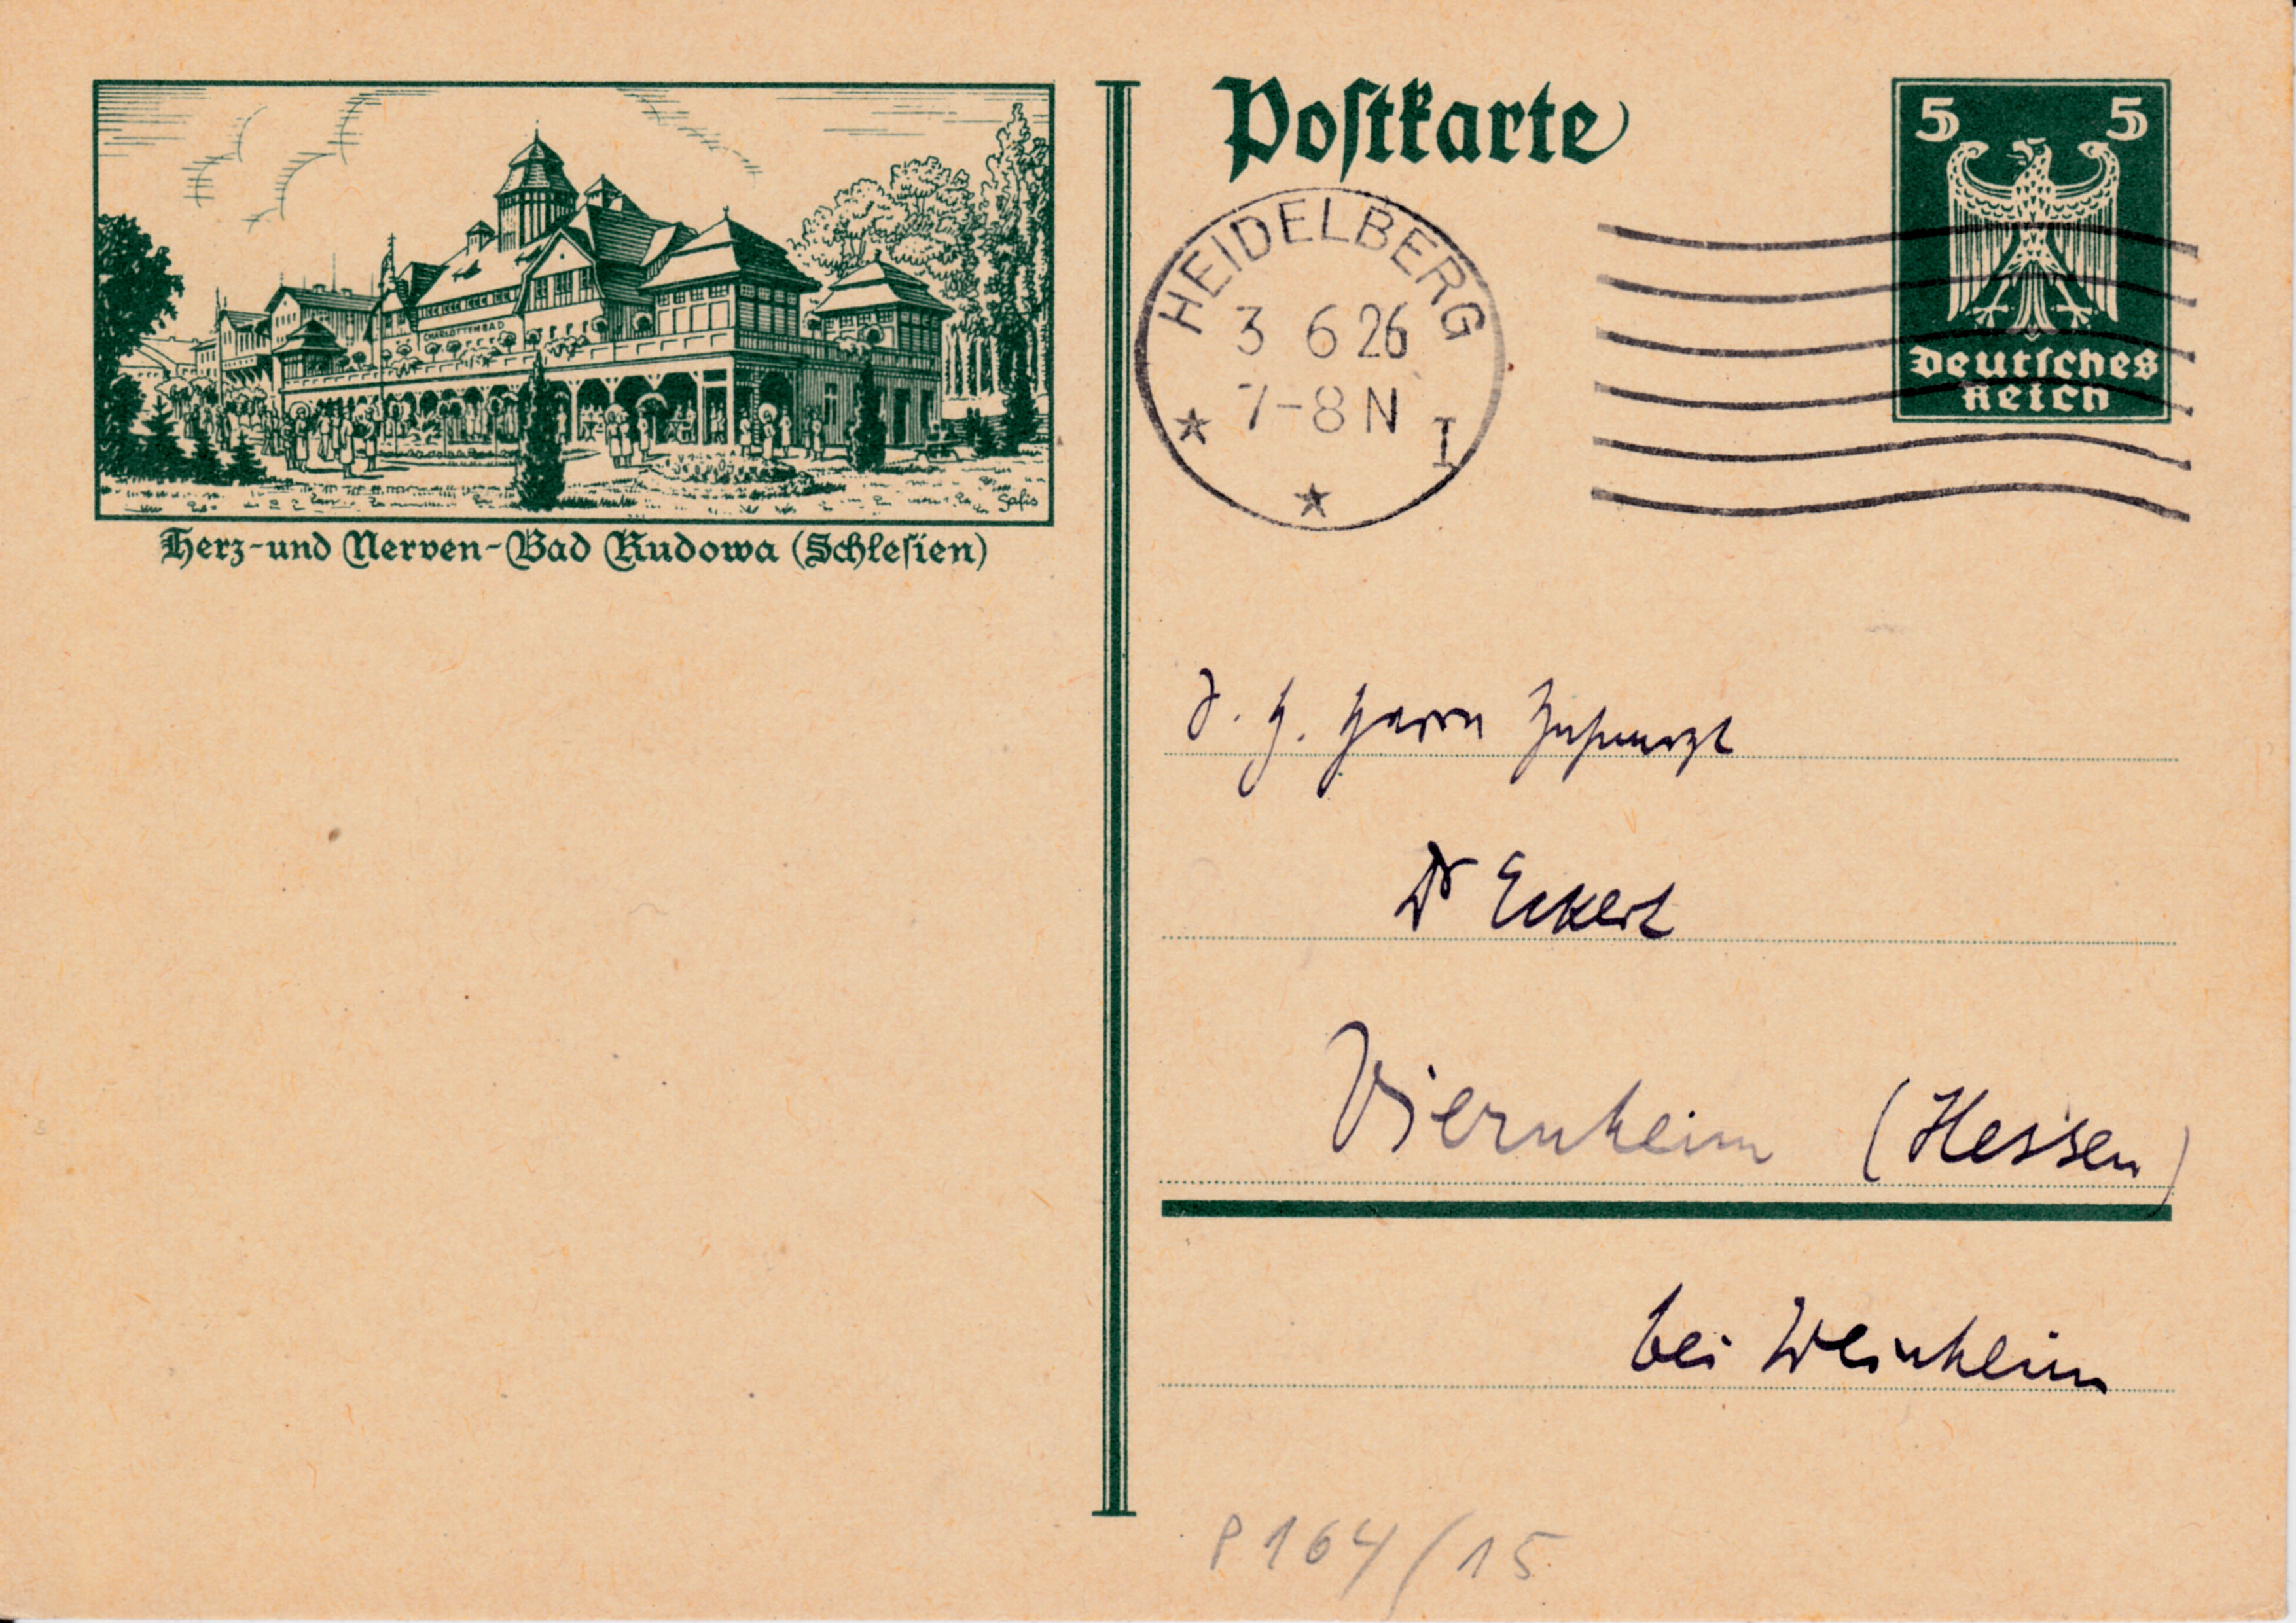 CHARLOTTENBAD
Gafis
Herz- und Nerven-Bad Kudowa (Schlesien)
Postkarte
5 5
Deutsches
Reich
HEIDELBERG
3 6 26
7-8 N
I
S. H. Herrn Zahnarzt
Dr Eckert
Viernheim (Hessen)
bei Weinheim
P 164/15